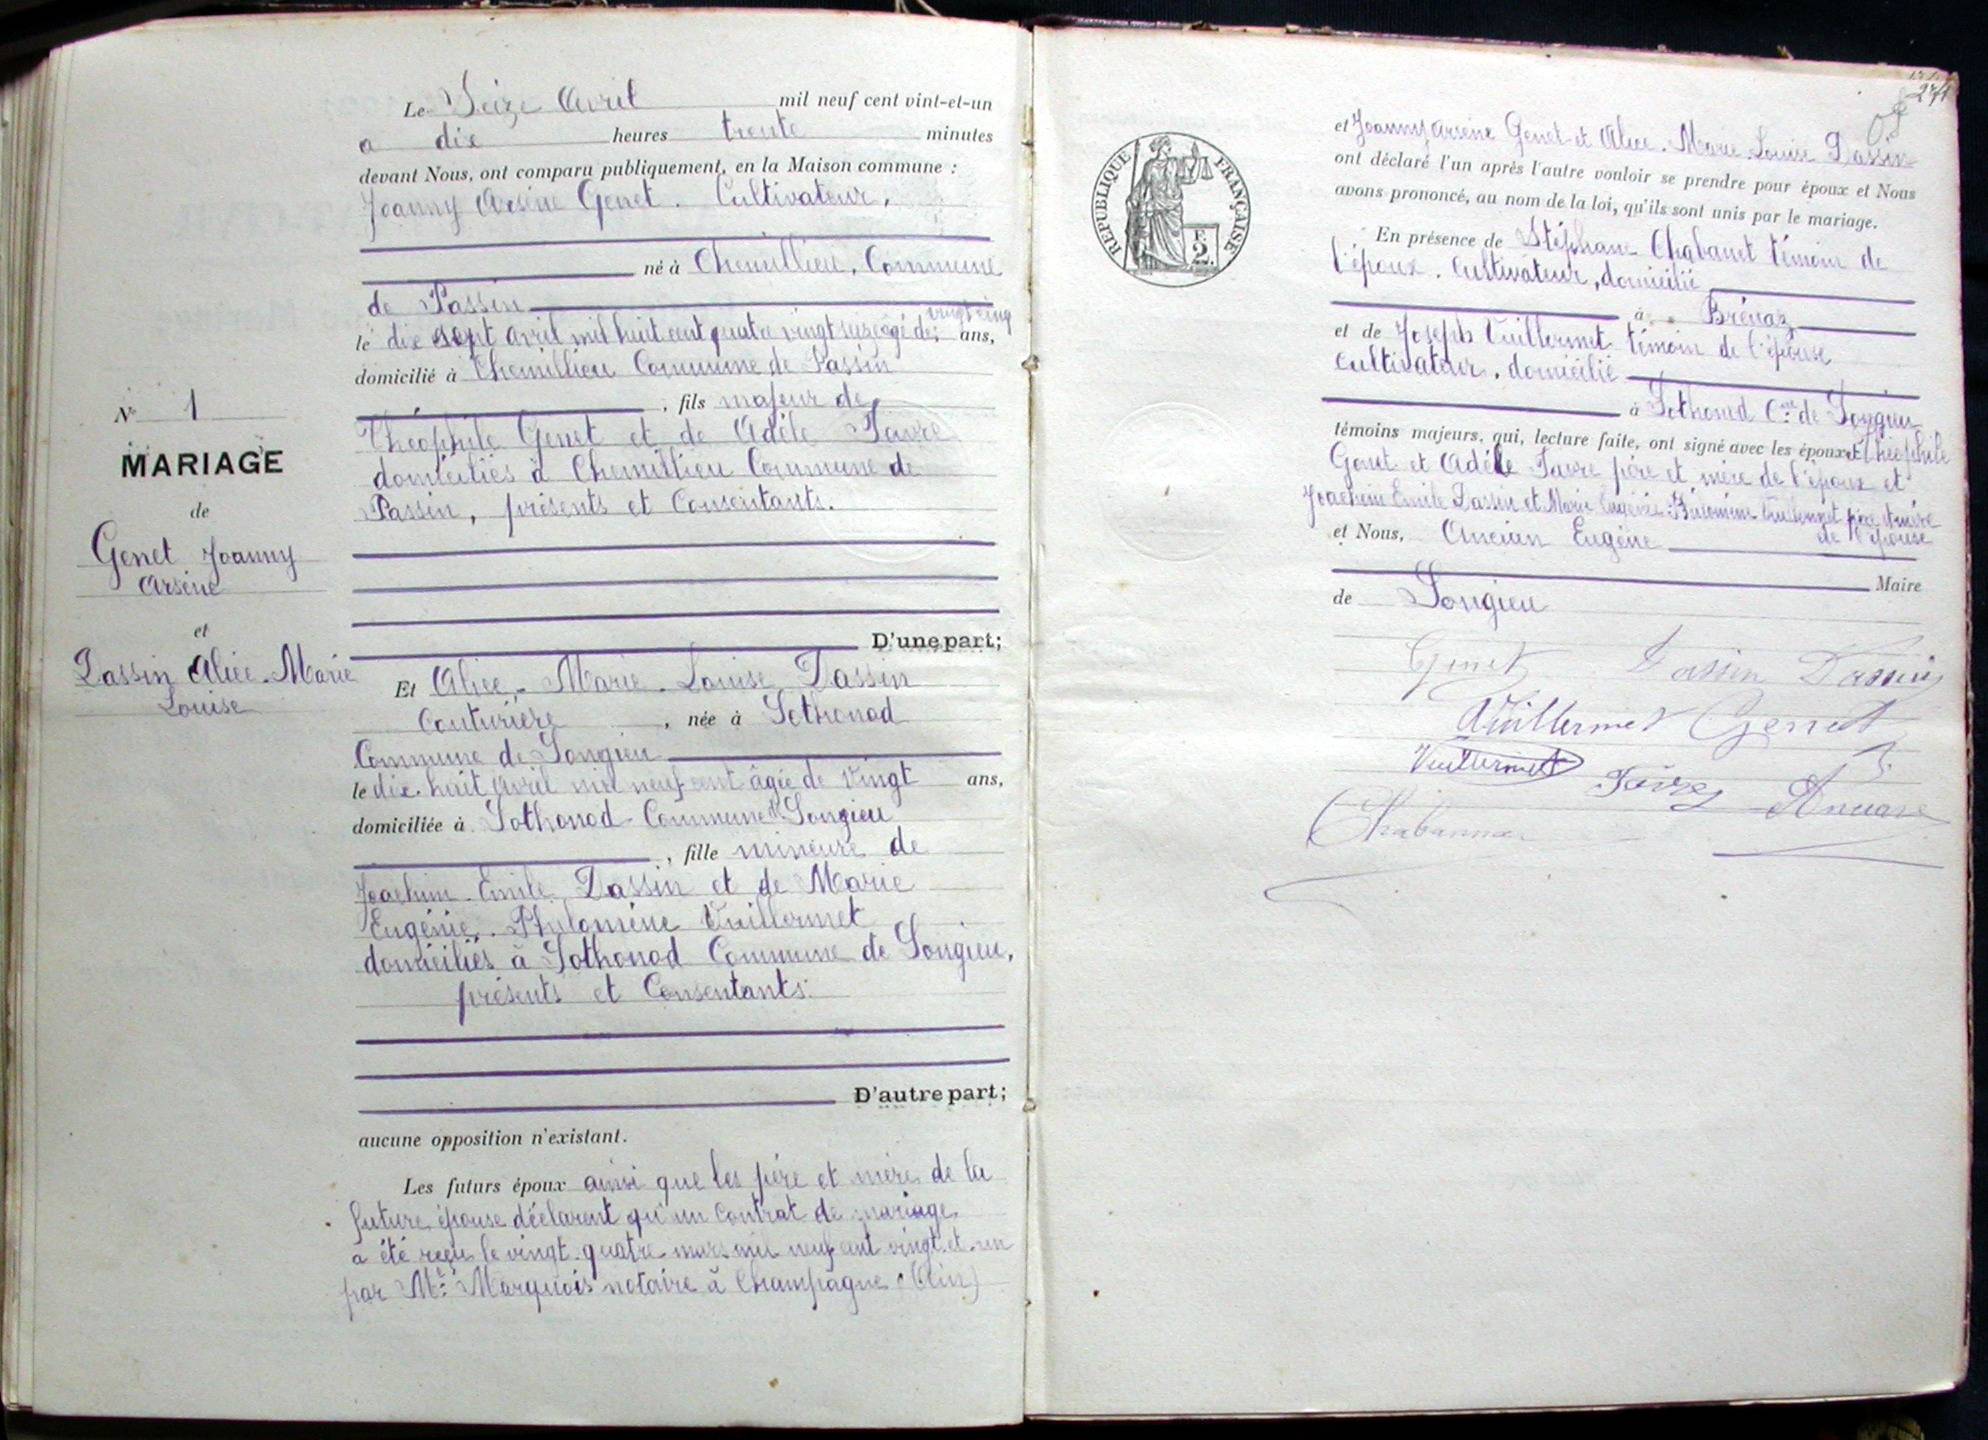 Le Seize Avril mil neuf cent vint-et-un
a dix heures trente minutes
devant Nous, ont comparu publiquement, en la Maison commune :
Joanny Arsène Genet. Cultivateur,
né à Chemillieu, Commune
de Passin
vingt cinq
le dix sept avril mil huit cent quatre vingt seize âgé de ans,
domicilié à Chemillieu Commune de Passin
, fils majeur de
Théophile Genet et de Adèle Favre
domiciliés à Chemillieu Commune de
Passin, présents et Consentants.
D'une part;
N° 1
MARIAGE
de
Genet Joanny
Arsène
et
Dassin Alice-Marie
Louise
Et Alice-Marie-Louise Dassin
Couturière, née à Sothonod
Commune de Songieu
le dix-huit avril mil neuf cent âgée de vingt ans,
domiciliée à Sothonod Commune de Songieu
, fille mineure de
Joachim Emile Dassin et de Marie
Eugénie Philomène Vuillermet
domiciliés à Sothonod Commune de Songieu,
présents et Consentants.
D'autre part;
aucune opposition n'existant.
Les futurs époux ainsi que les père et mère de la
future épouse déclarent qu'un contrat de mariage
a été reçu le vingt-quatre mars mil neuf cent vingt et un
par Me Marquois notaire à Champagne (Ain)
271
RÉPUBLIQUE FRANÇAISE
2
et Joanny Arsène Genet et Alice-Marie Louise Dassin
ont déclaré l'un après l'autre vouloir se prendre pour époux et Nous
avons prononcé, au nom de la loi, qu'ils sont unis par le mariage.
En présence de Stéphane Chabanet témoin de
l'époux. Cultivateur, domicilié
à Brénaz
et de Joseph Vuillermet témoin de l'épouse
cultivateur, domicilié
à Sothonod Cne de Songieu
témoins majeurs, qui, lecture faite, ont signé avec les époux et Théophile
Genet et Adèle Favre père et mère de l'époux et
Joachim Emile Dassin et Marie Eugénie Vuillermet père et mère
de l'épouse
et Nous, Ancian Eugène
Maire
de Songieu
Genet Dassin Dassin
Vuillermet Genet
Vuillermet Favre